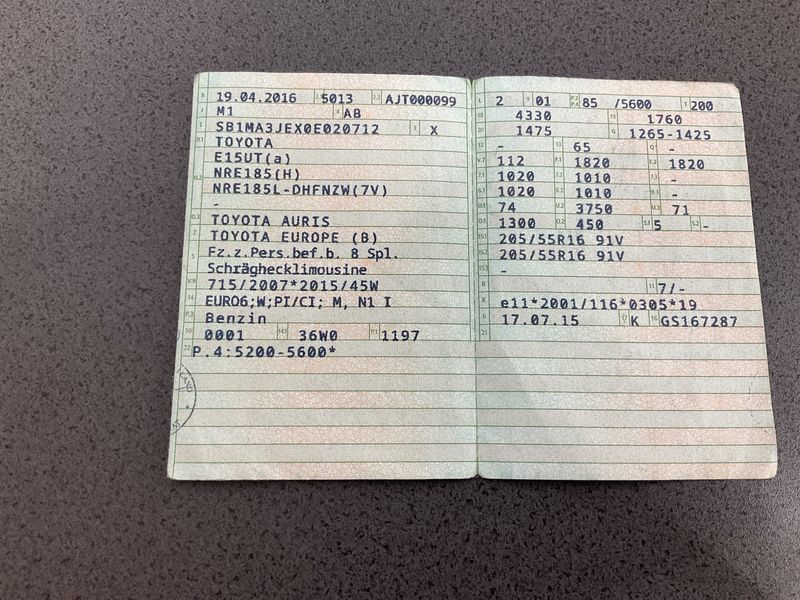 B 19.04.2016 2.1 5013 2.2 AJT000099
J M1 4 AB
E SB1MA3JEX0E020712 3 X
D.1 TOYOTA
E15UT(a)
D.2 NRE185(H)
NRE185L-DHFNZW(7V)
-
D.3 TOYOTA AURIS
2 TOYOTA EUROPE (B)
5 Fz.z.Pers.bef.b. 8 Spl.
Schräghecklimousine
V.9 715/2007*2015/45W
14 EURO6;W;PI/CI; M, N1 I
P.3 Benzin
10 0001 14.1 36W0 P.1 1197
22 P.4:5200-5600*
L 2 9 01 P.2 P.4 85 /5600 T 200
18 4330 19 1760
20 1475 G 1265-1425
12 - 13 65 Q -
V.7 112 F.1 1820 F.2 1820
7.1 1020 7.2 1010 7.3 -
8.1 1020 8.2 1010 8.3 -
U.1 74 U.2 3750 U.3 71
O.1 1300 O.2 450 S.1 5 S.2 -
15.1 205/55R16 91V
15.2 205/55R16 91V
15.3 -
R 11 7/-
K e11*2001/116*0305*19
6 17.07.15 17 K 16 GS167287
21